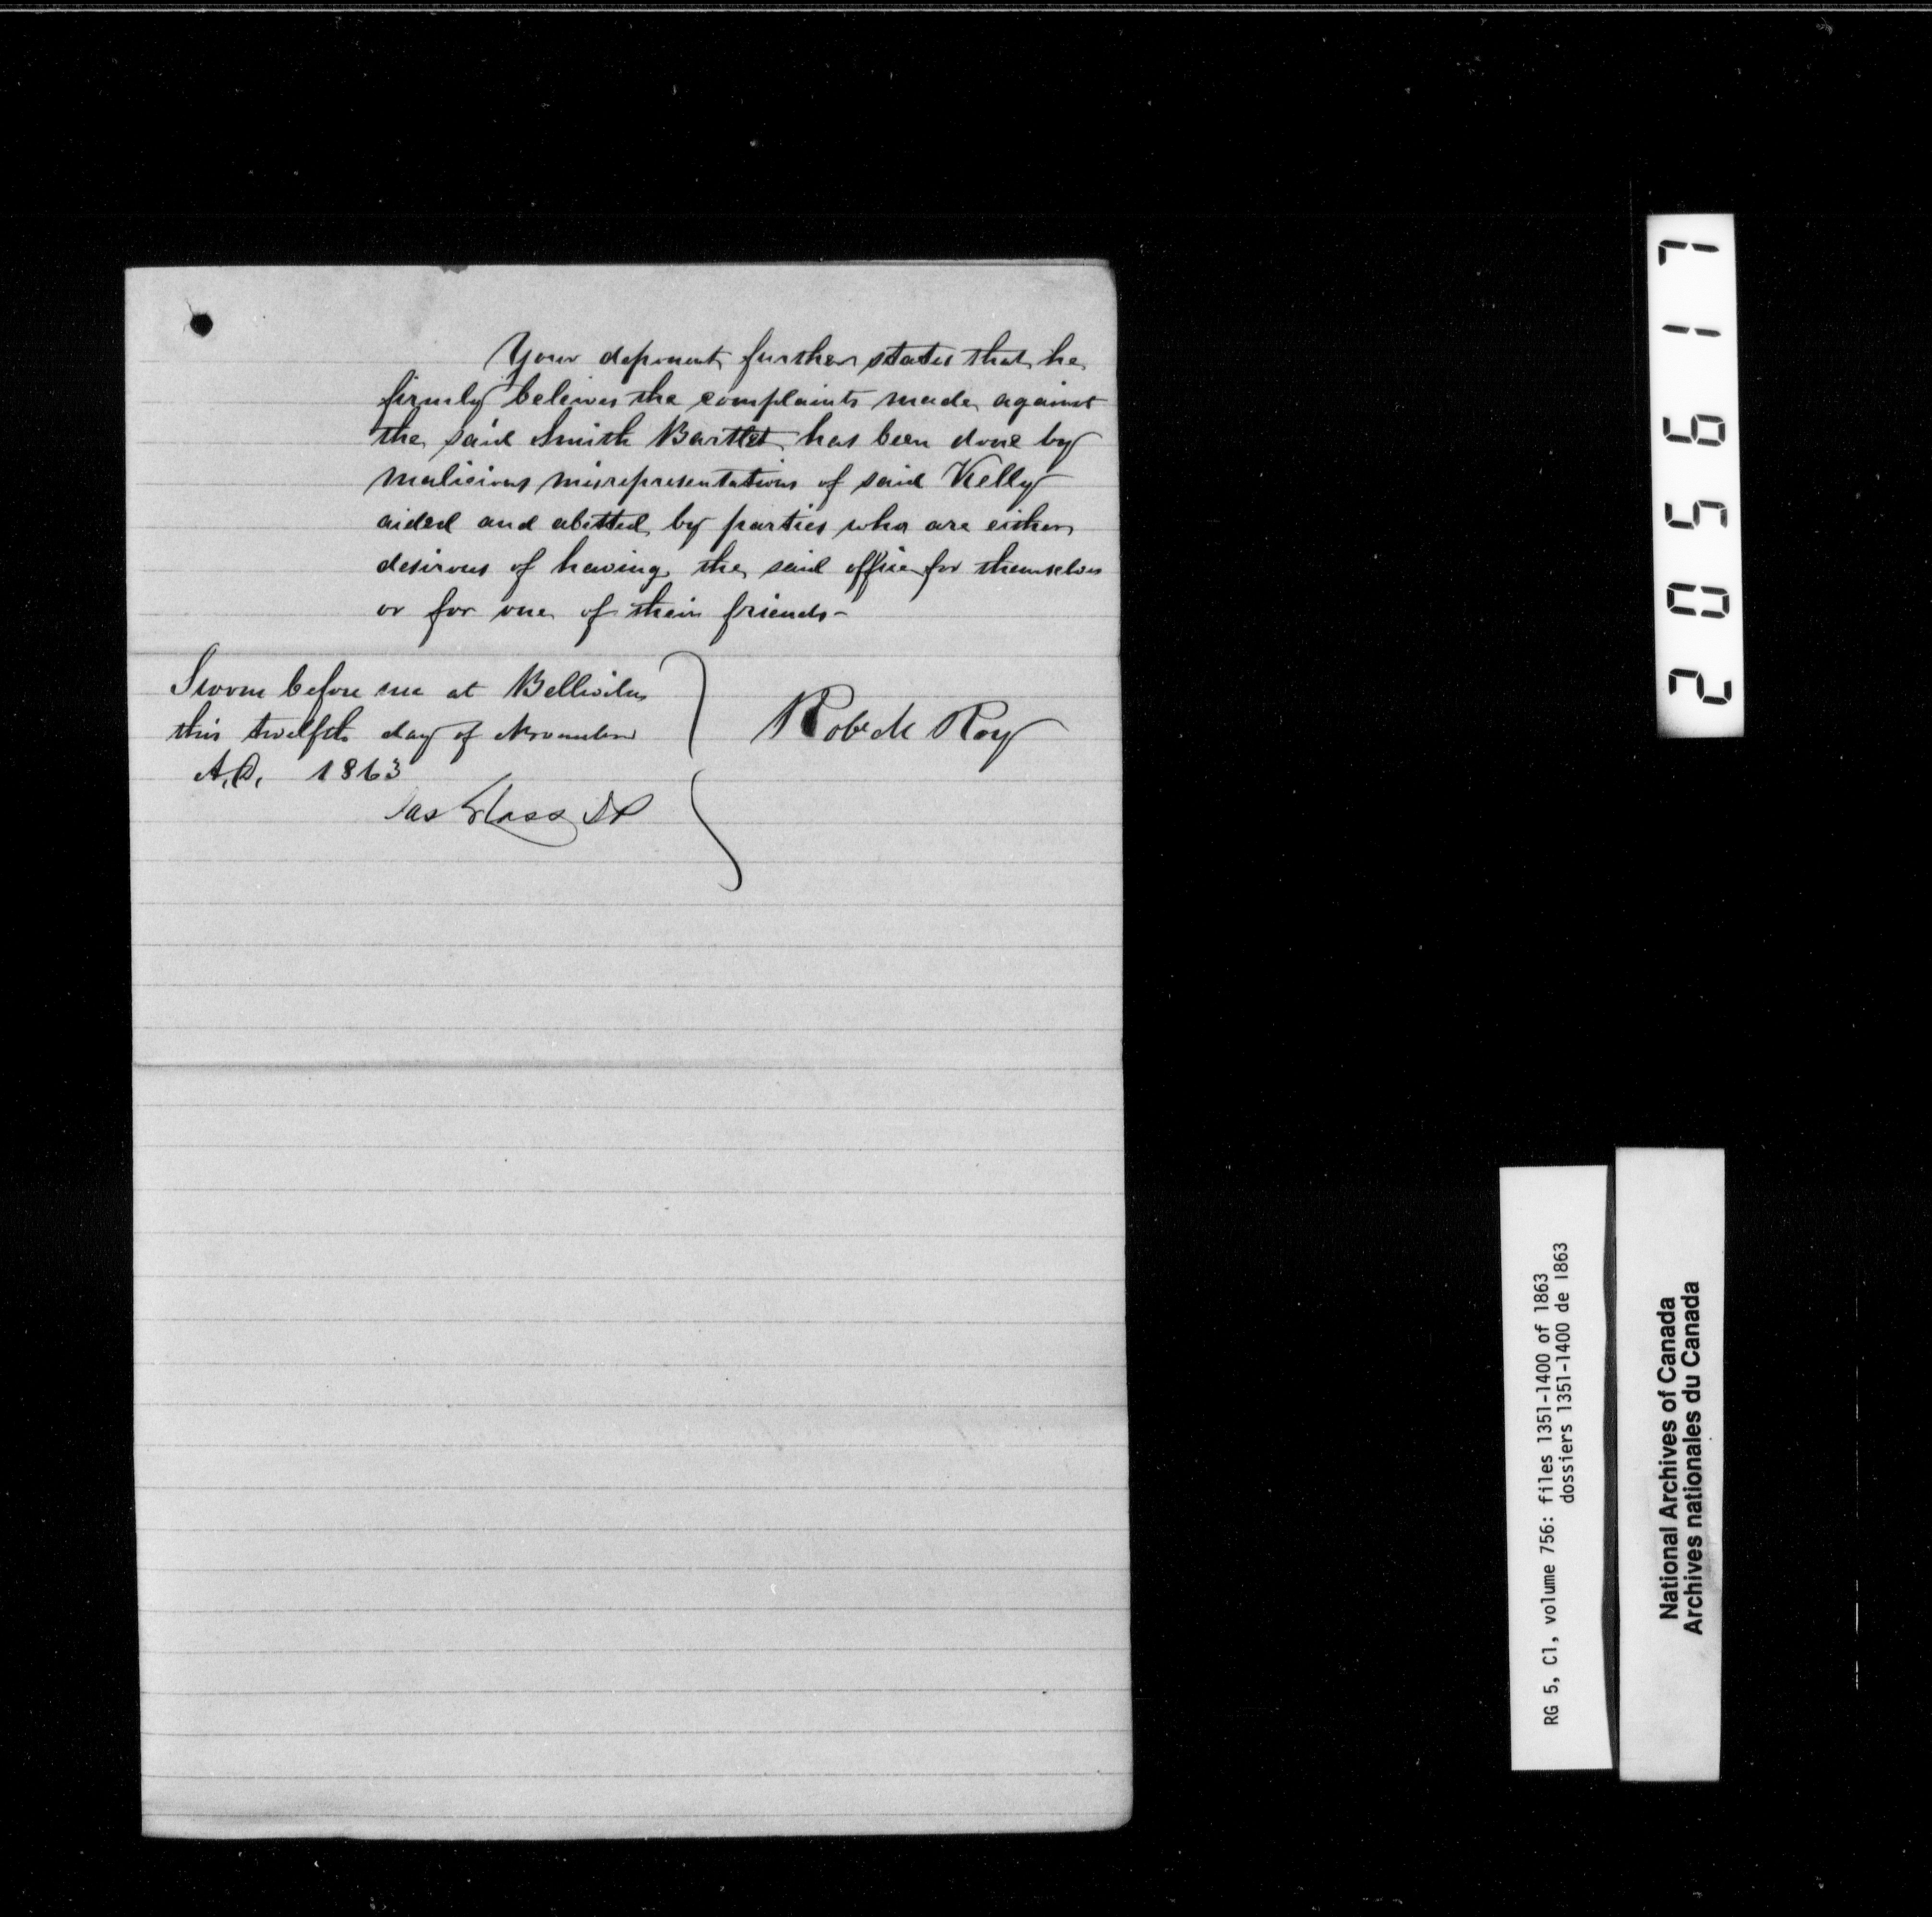 Your deponent further states that he
firmly beleives the complaints made against
the said Smith Bartlet has been done by
malicious misrepresentations of said Kelly
aided and abetted by parties who are either
desirous of having the said office for themselves
or for one of their friends-
Sworn before me at Belleville
this twelfth day of November
A.D. 1863
Jas Glass JP
Roy
205617
RG 5, C1, volume 756: files 1351-1400 of 1863
dossiers 1351-1400 de 1863
National Archives of Canada
Archives nationales du Canada